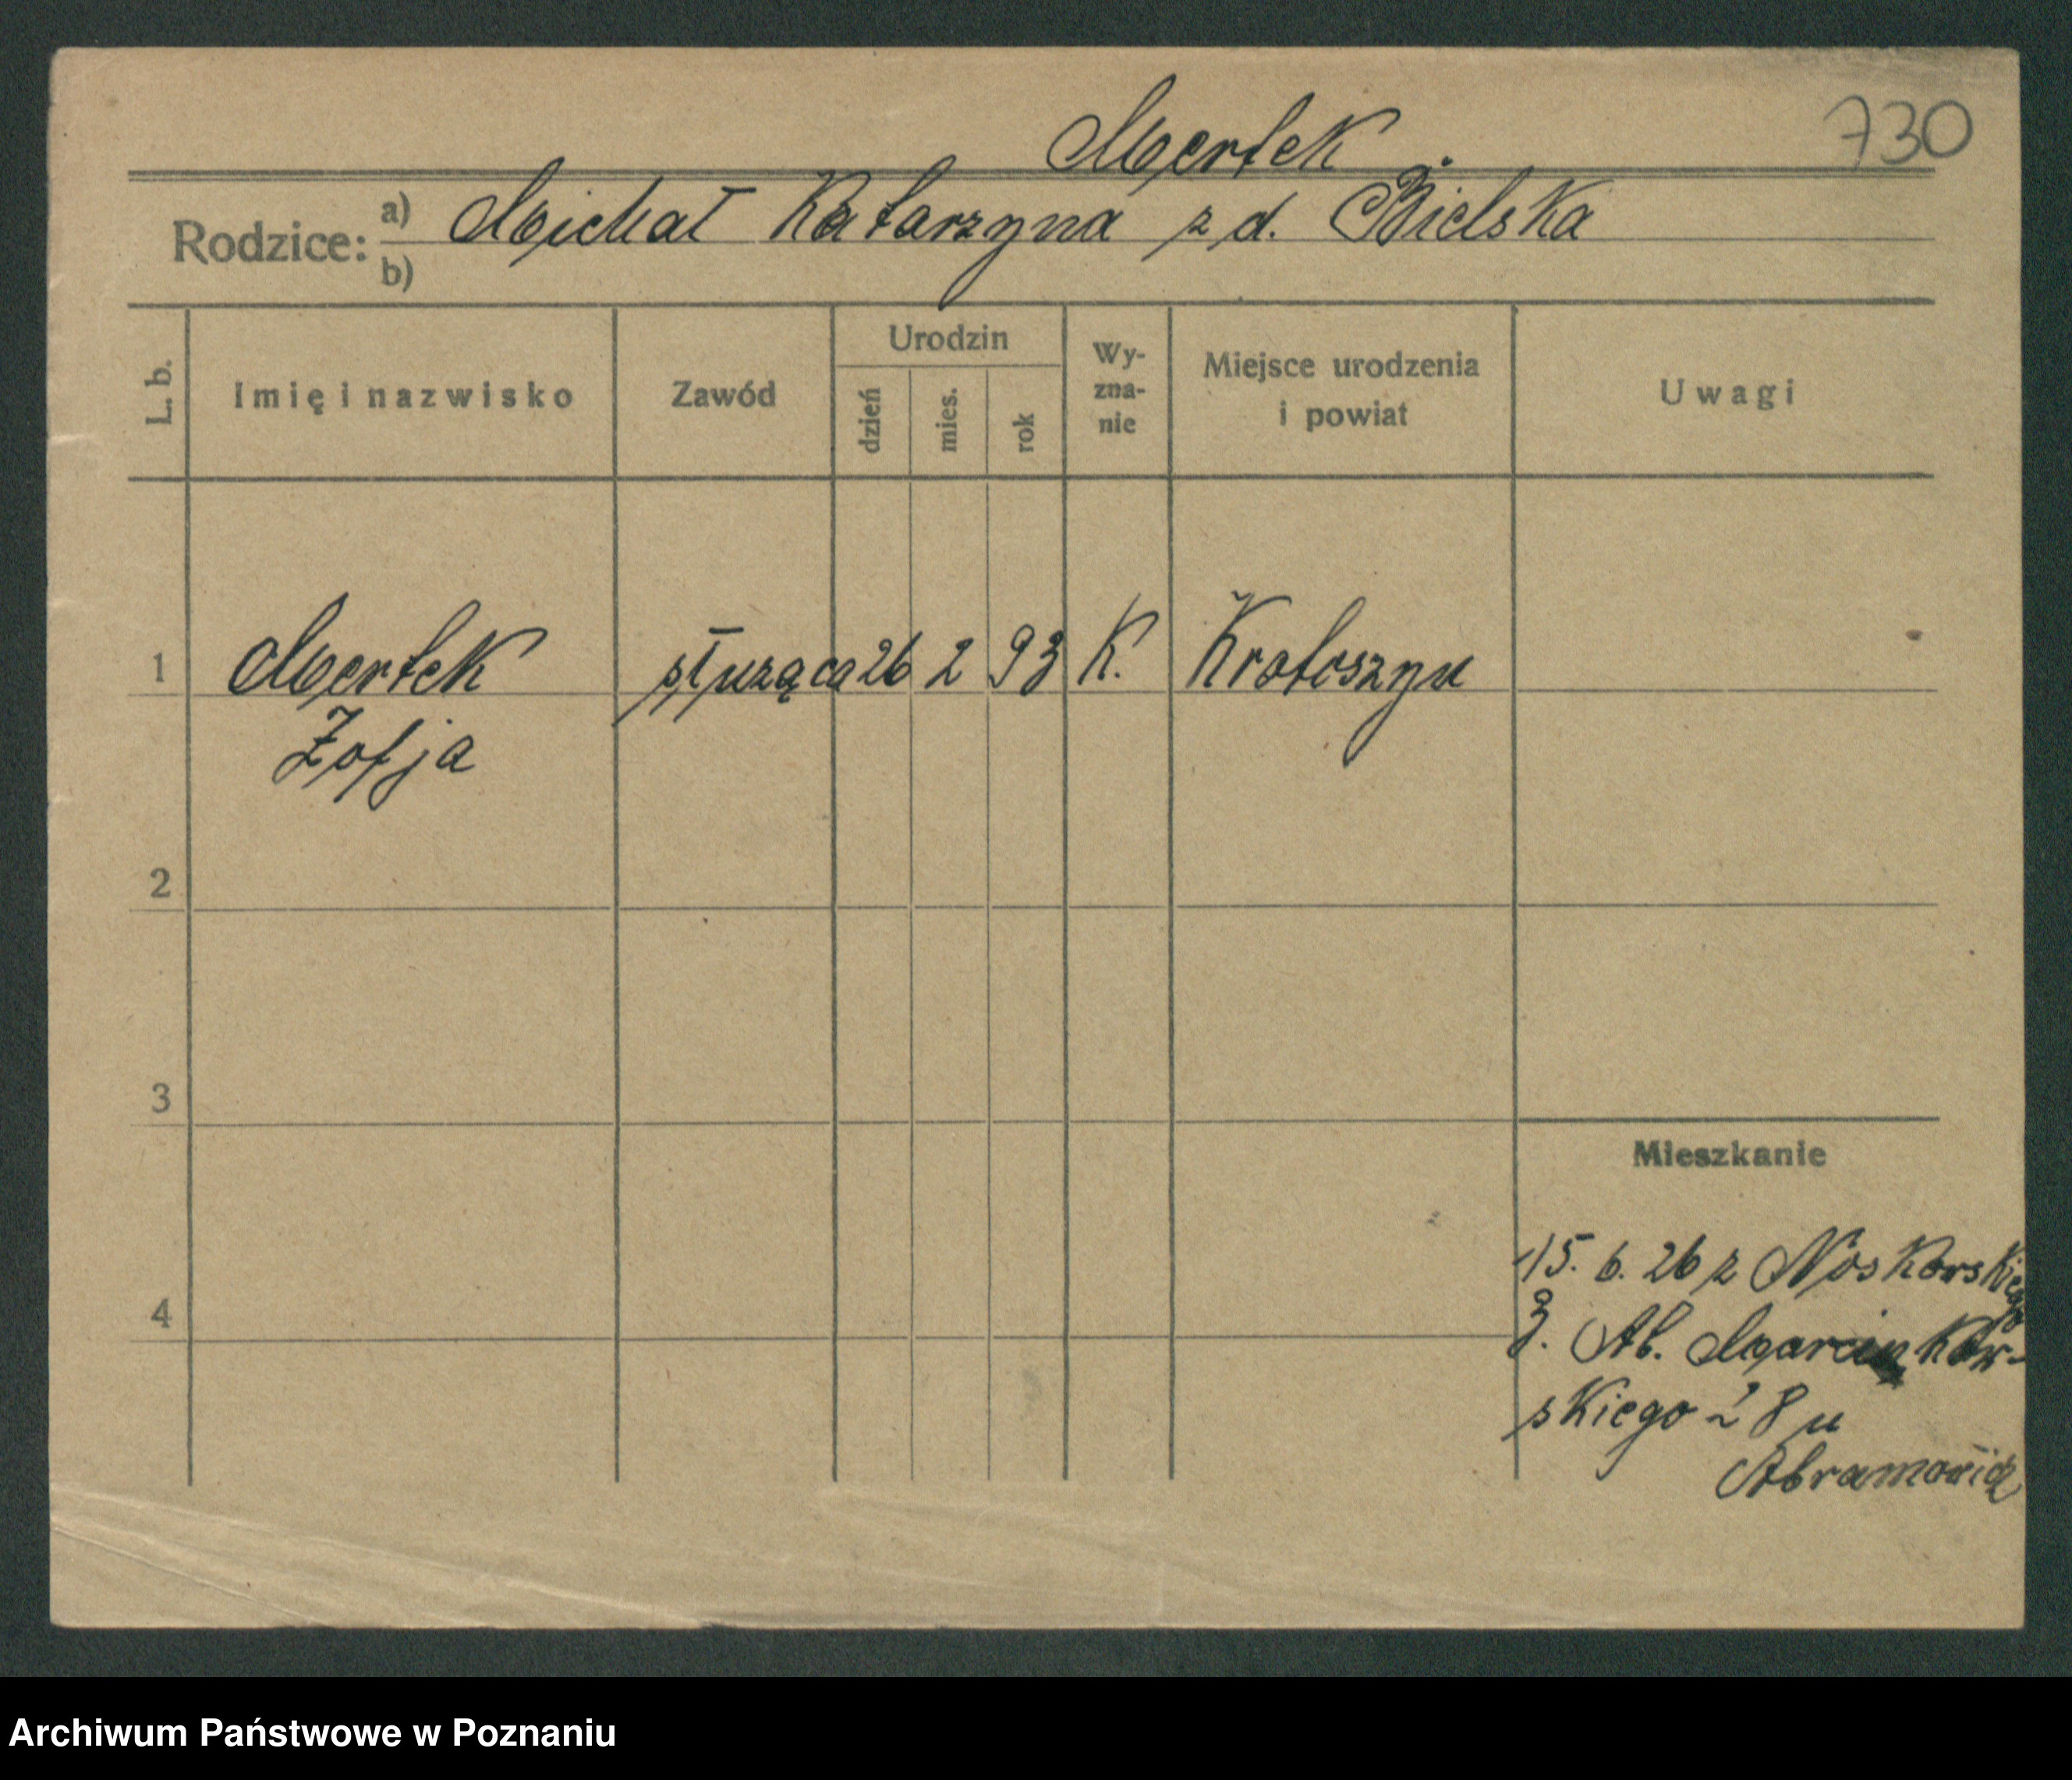 Mertek
730
Rodzice:
a) Michał Katarzyna z d. Bielska
b)
L. b.
Imię i nazwisko
Zawód
Urodzin
dzień
mies.
rok
Wy-
zna-
nie
Miejsce urodzenia
i powiat
Uwagi
1 Mertek służąca 26 2 93 K. Krotoszyn
Zofja
2
3
4
Mieszkanie
15. 6. 26 z Noskowskiego
3. Al. Marcinkow-
skiego 8 u
Abramowicz
Archiwum Państwowe w Poznaniu